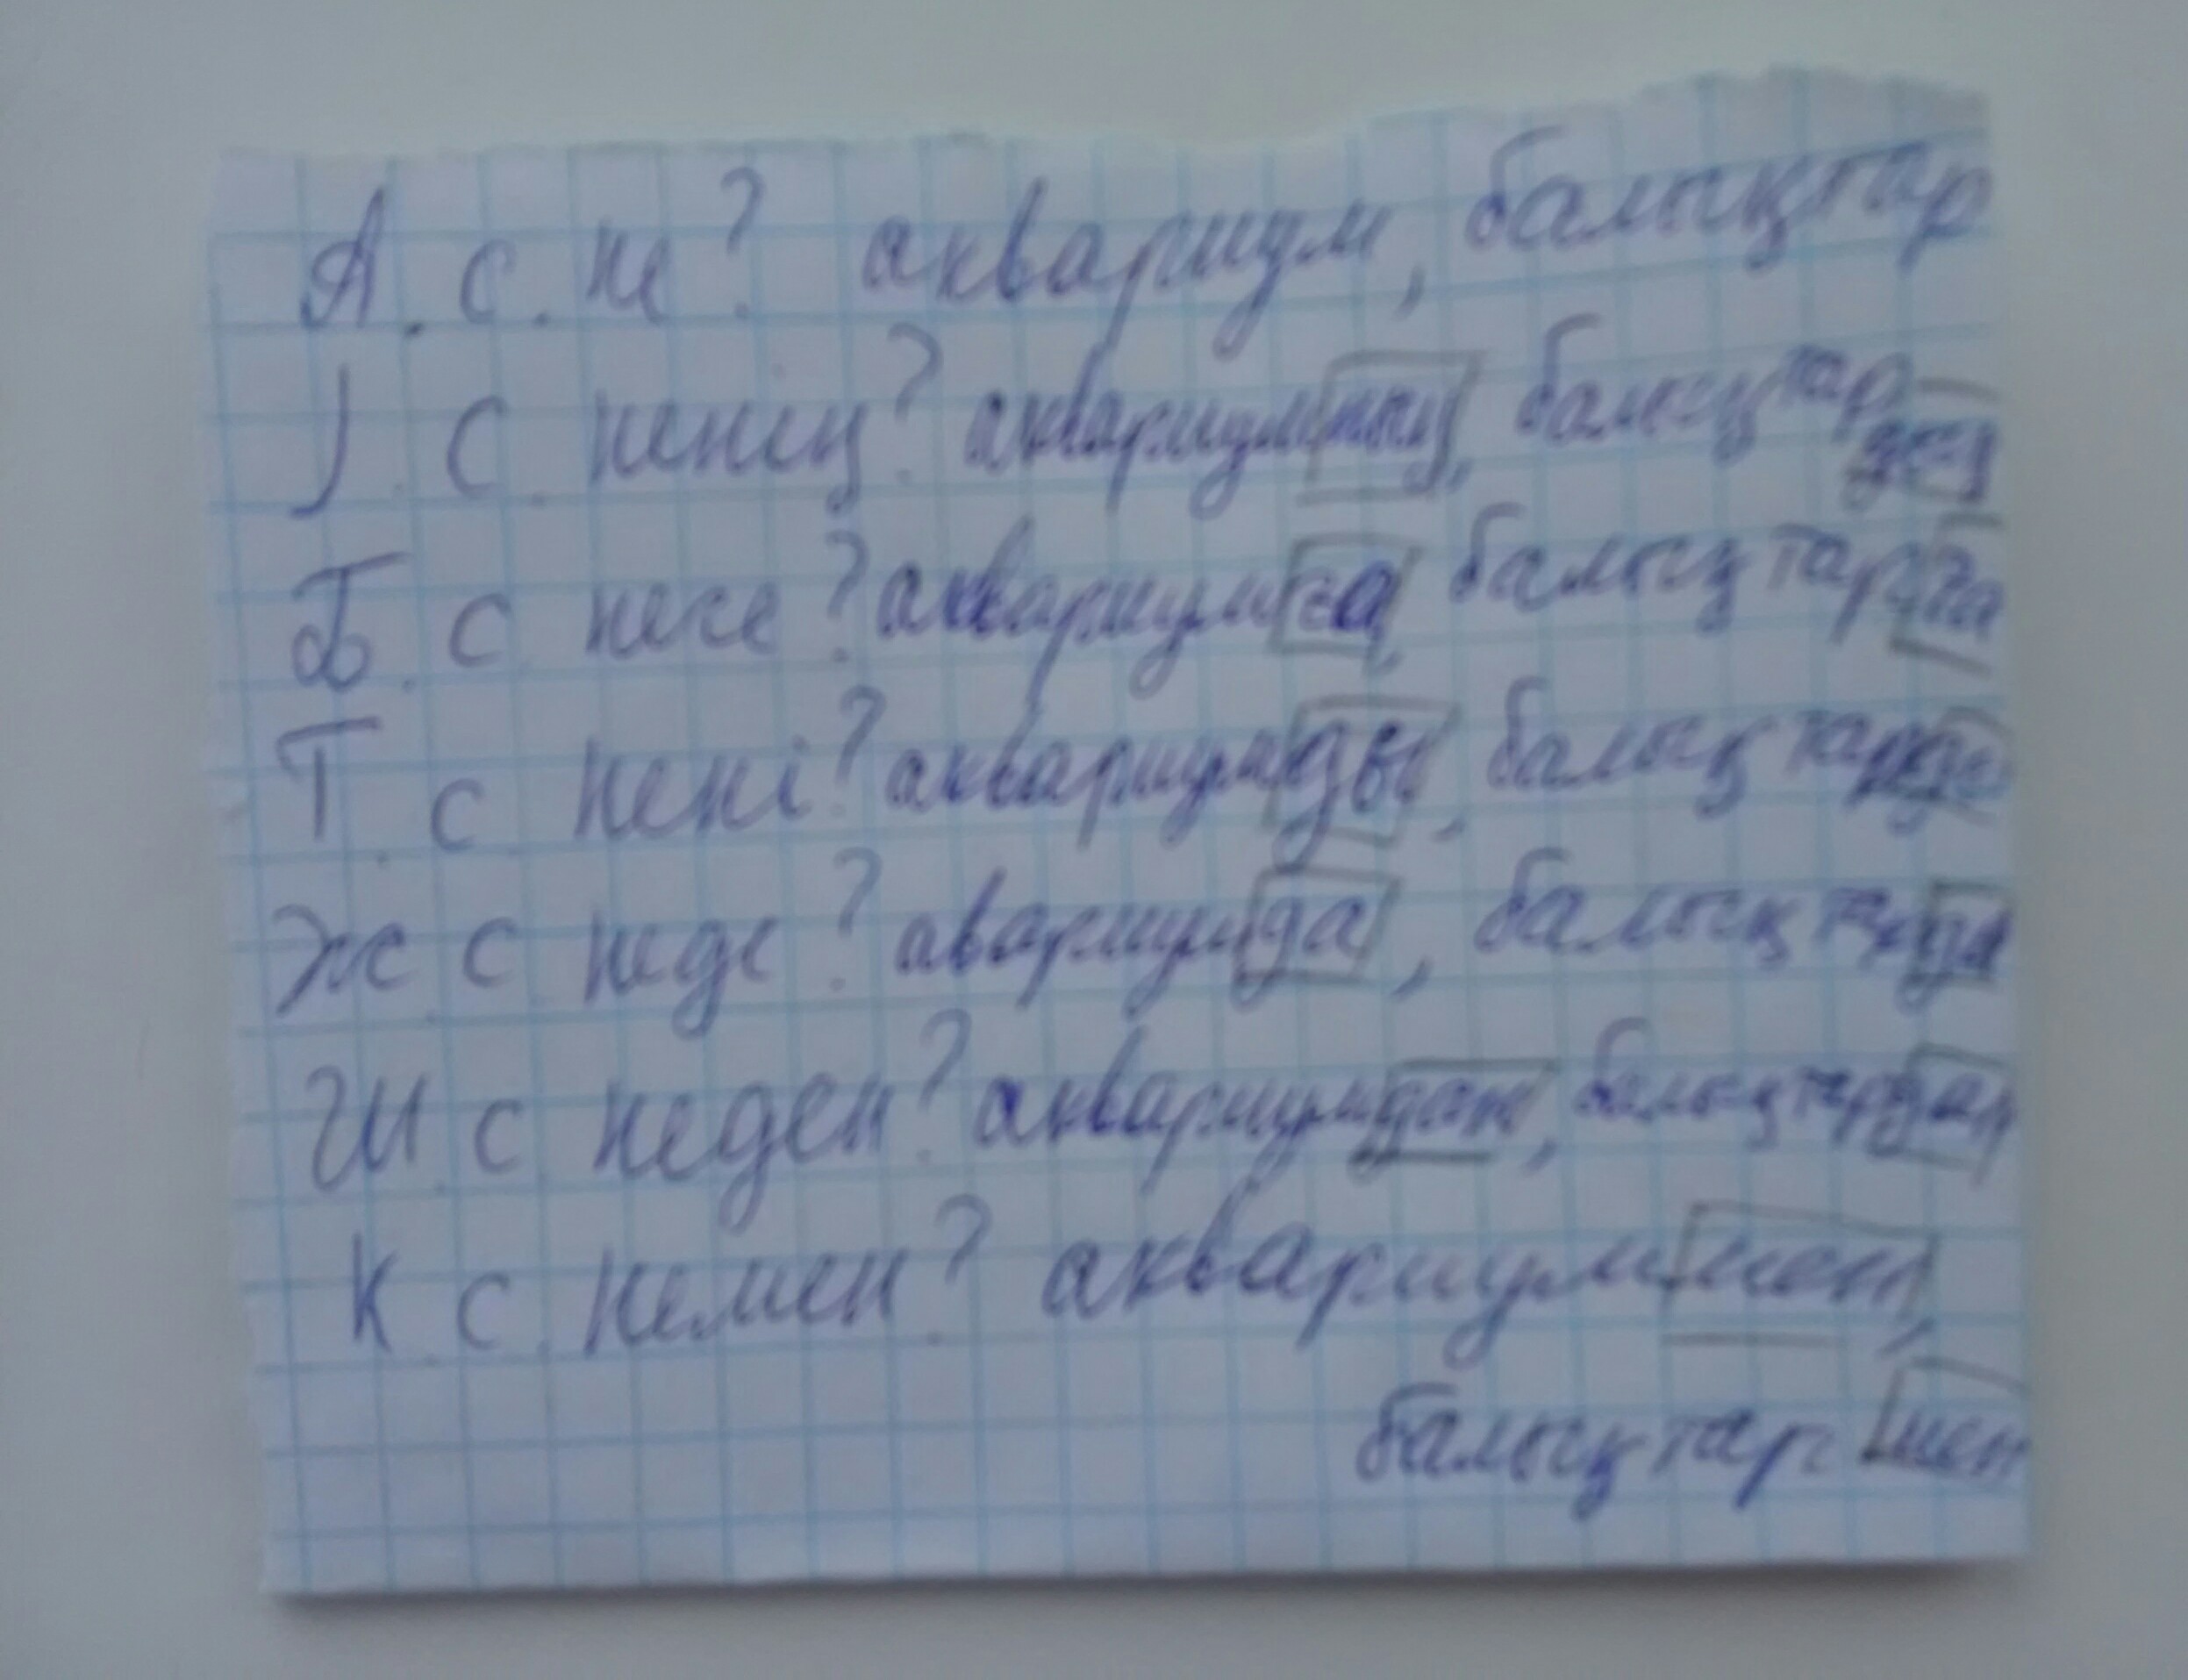 А. с. не? аквариум, балықтар
І. С. ненің? аквариумның, балықтар
дың
Б. с. неге? аквариумға, балықтарға
Т. с. нені? аквариумды, балықтарды
Ж. с. неде? авариумда, балықтарда
Ш. с. неден? аквариумдан, балықтардан
К. с. немен? аквариуммен,
балықтармен